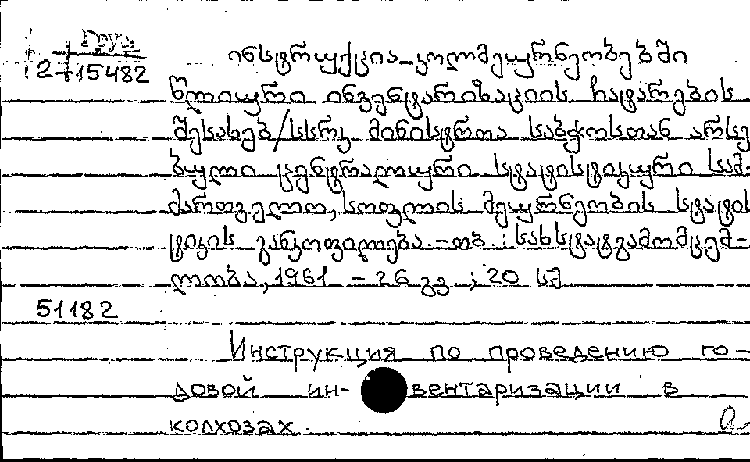 Груз
2-15482
ინსტრუქცია კოლმეურნეობებში
წლიური ინვენტარიზაციის ჩატარების
შესახებ/სსრკ მინისტრთა საბჭოსთან არსე
ბული ცენტრალური სტატისტიკური სამ-
მართველო, სოფლის მეურნეობის სტატის
ტიკის განყოფილება.-თბ.: სახსტატგამომცემ-
ლობა, 1961 - 26 გვ ; 20 სმ
51182
Инструкция по проведению го-
довой ин-вентаризации в
колхозах.